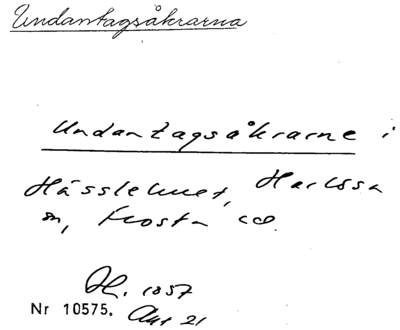 Undantagsåkrarna
Undantagsåkrarne i
Hässlehult, Harlösa
sn, Frosta hd.
H. 1857
Nr 10575. Akt 21